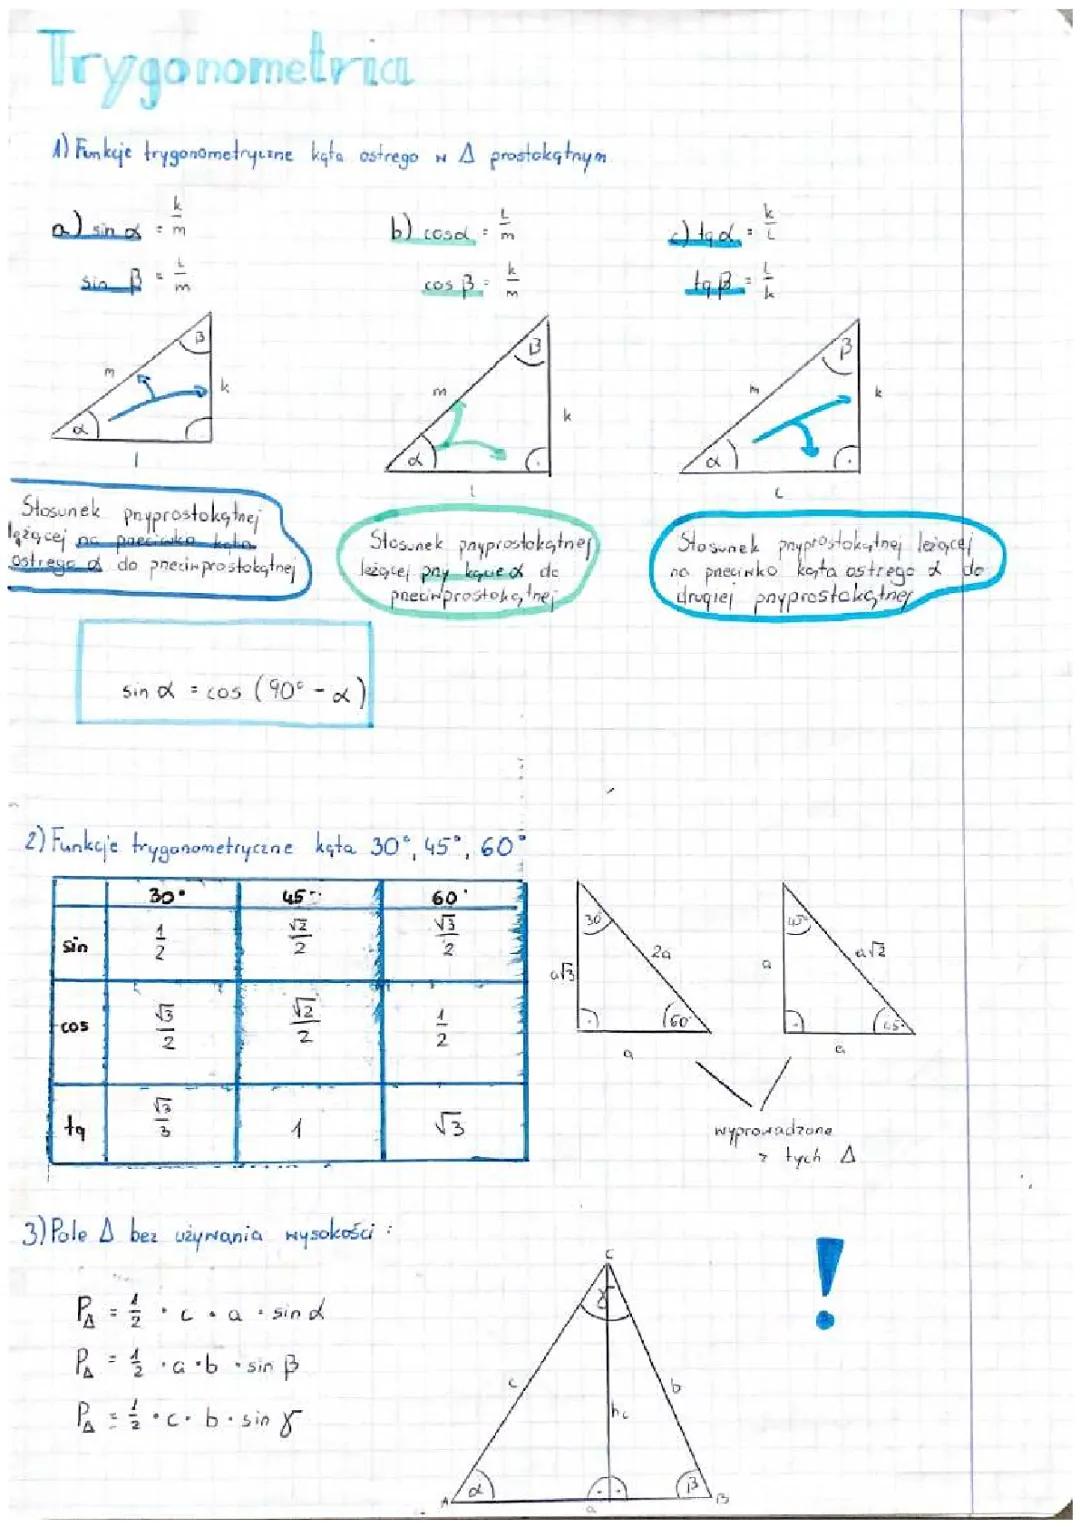 Trygonometria
1) Funkcje trygonometryczne kąta ostrego w Δ prostokątnym
a) sin α = k/m
sin β = l/m
b) cos α = l/m
cos β = k/m
c) tg α = k/l
tg β = l/k
β
m
k
α
l
β
m
k
α
l
β
m
k
α
l
Stosunek przyprostokątnej
leżącej na przeciwko kąta
ostrego α do przeciwprostokątnej
Stosunek przyprostokątnej
leżącej przy kącie α do
przeciwprostokątnej
Stosunek przyprostokątnej leżącej
na przeciwko kąta ostrego α do
drugiej przyprostokątnej
sin α = cos (90° - α)
2) Funkcje trygonometryczne kąta 30°, 45°, 60°
30° 45° 60°
sin 1/2 √2/2 √3/2
cos √3/2 √2/2 1/2
tg √3/3 1 √3
30
2a
a√3
60°
a
45°
a√2
a
45°
a
wyprowadzone
z tych Δ
3) Pole Δ bez używania wysokości:
P_Δ = 1/2 · c · a · sin α
P_Δ = 1/2 · a · b · sin β
P_Δ = 1/2 · c · b · sin γ
!
C
γ
c
b
hc
α
β
A
B
a